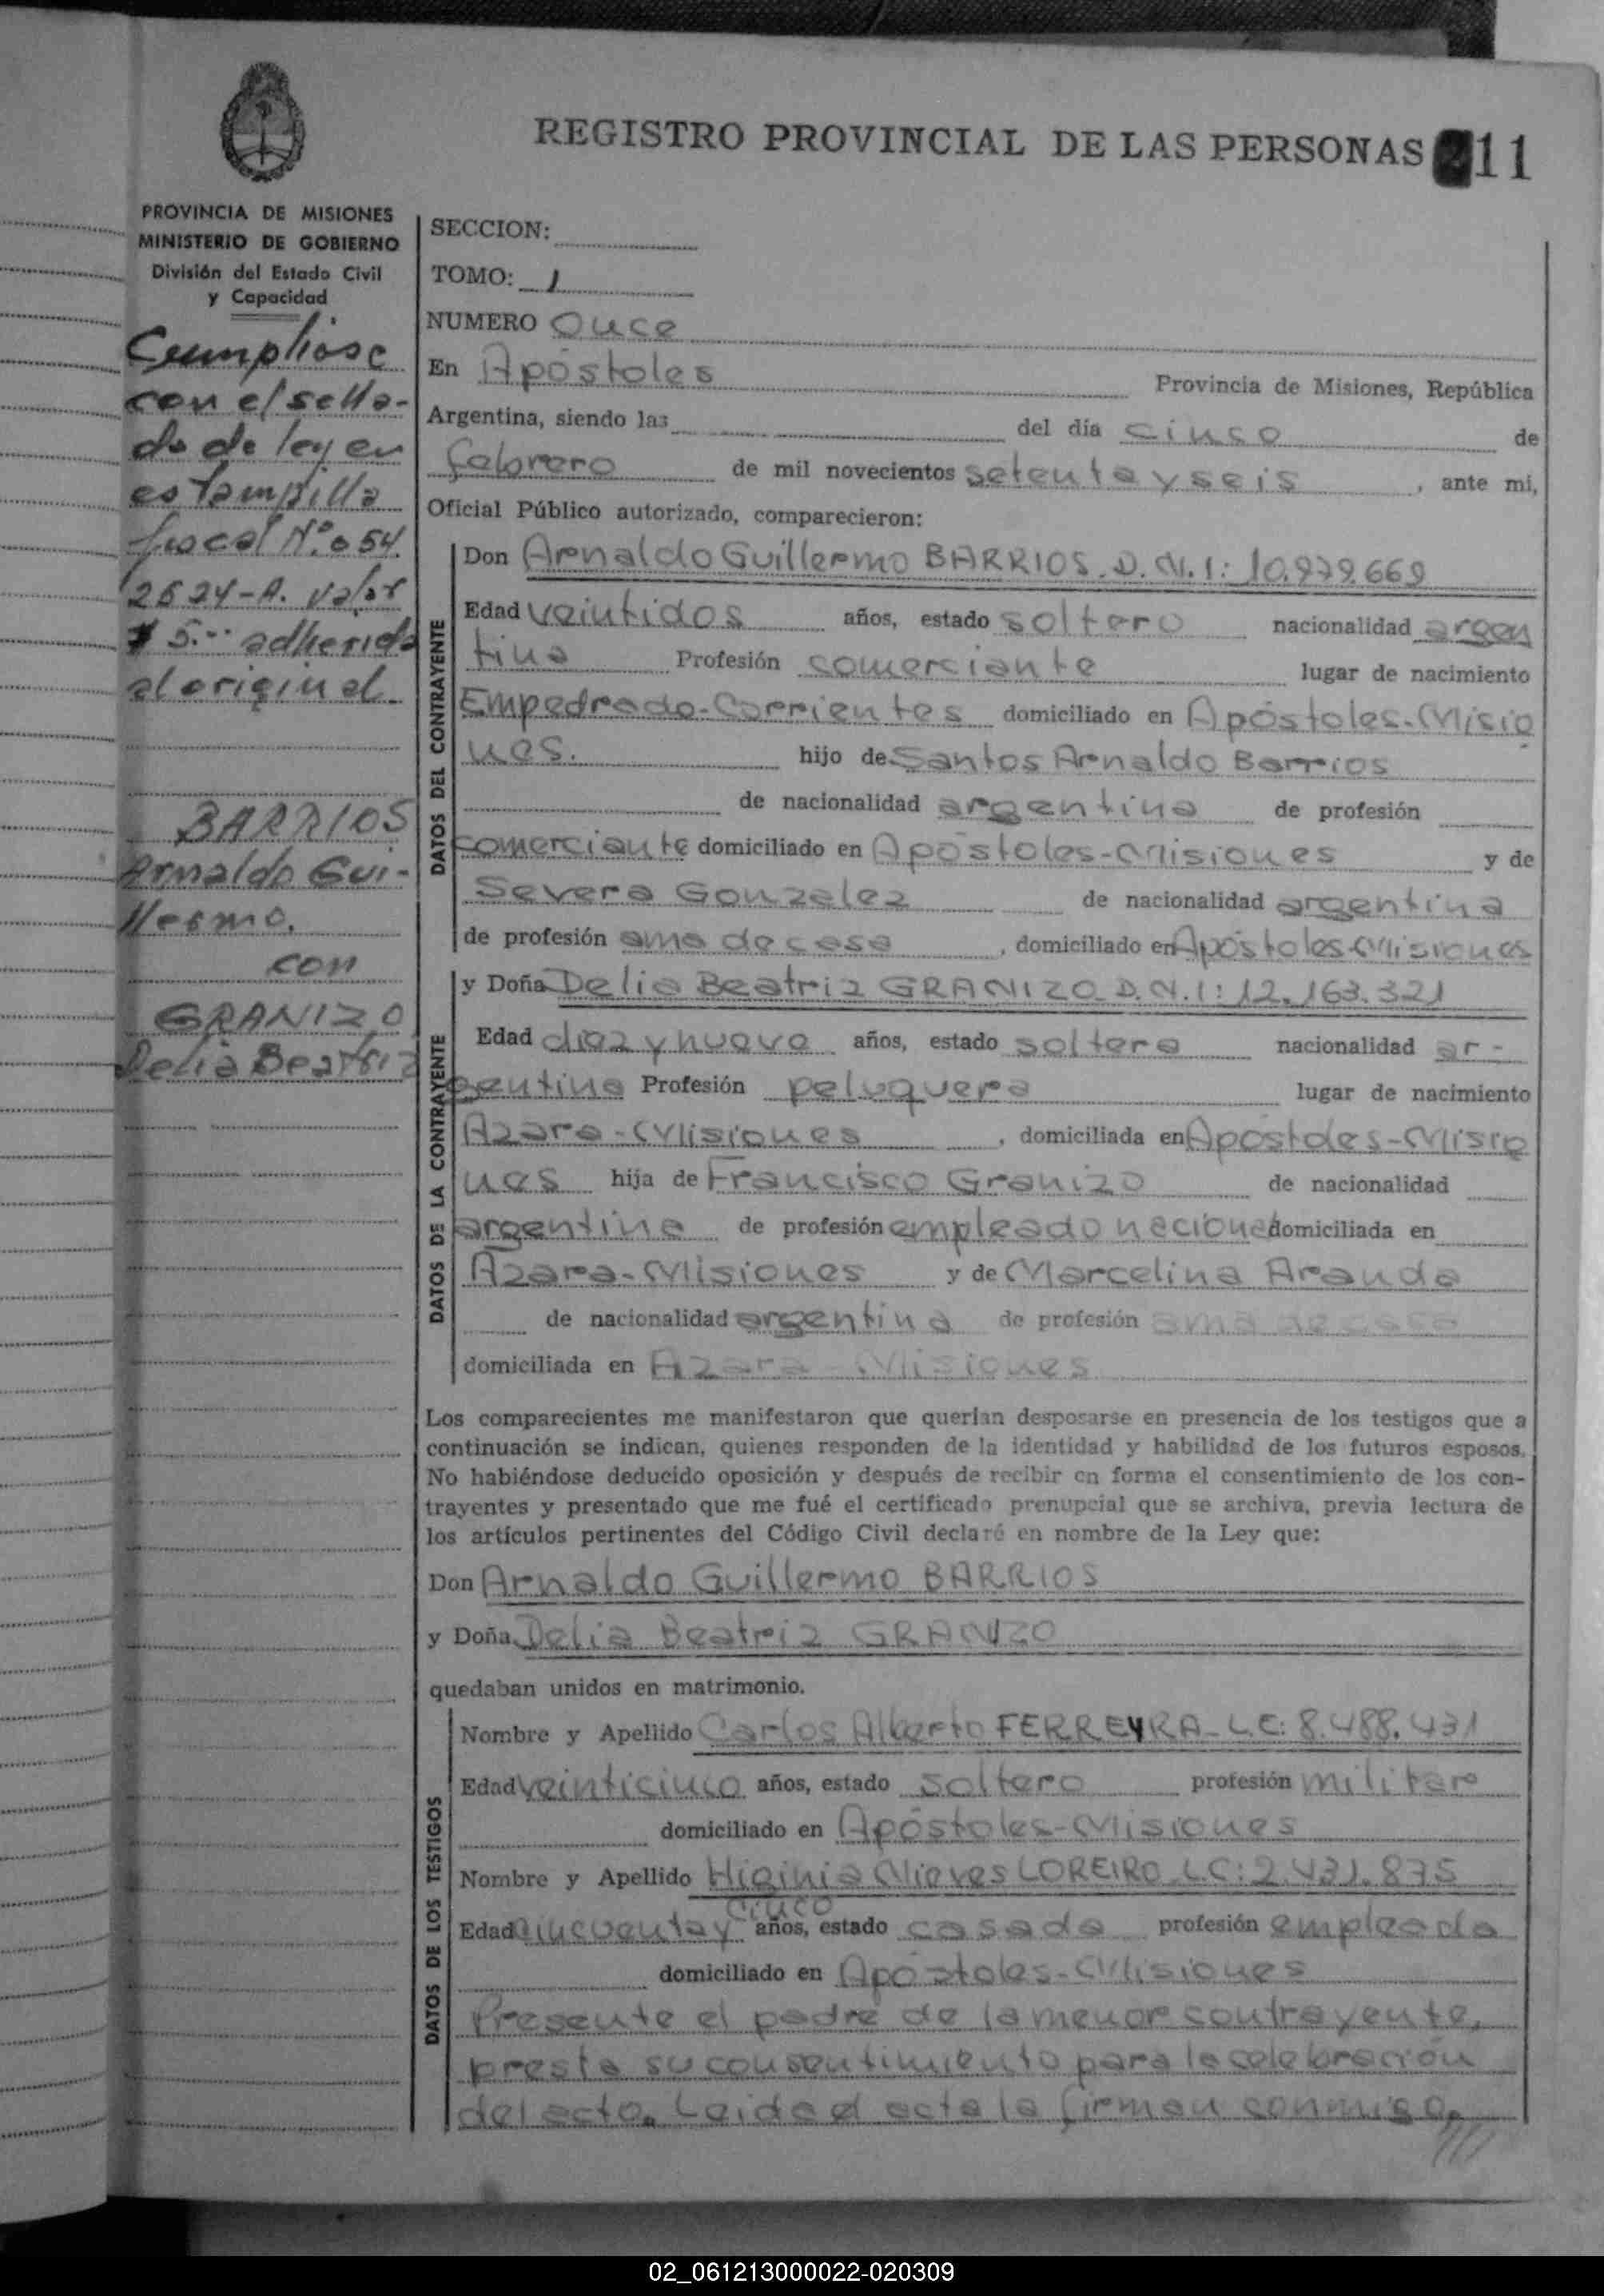 REGISTRO PROVINCIAL DE LAS PERSONAS 11
PROVINCIA DE MISIONES
MINISTERIO DE GOBIERNO
División del Estado Civil
y Capacidad
Cumpliose
con el sella-
do de ley en
estampilla
fiscal Nº 054
2624-A. valor
$ 5.-- adherida
al original.
BARRIOS
Arnaldo Gui-
llermo.
con
GRANIZO
Delia Beatriz
SECCION:
TOMO: 1
NUMERO Once
En Apóstoles Provincia de Misiones, República
Argentina, siendo las del día cinco de
febrero de mil novecientos setenta y seis , ante mi,
Oficial Público autorizado, comparecieron:
DATOS DEL CONTRAYENTE
Don Arnaldo Guillermo BARRIOS. D.N.I: 10.979.669
Edad veintidos años, estado soltero nacionalidad argen
tina Profesión comerciante lugar de nacimiento
Empedrado-Corrientes domiciliado en Apóstoles-Misio
nes. hijo de Santos Arnaldo Barrios
de nacionalidad argentina de profesión
comerciante domiciliado en Apóstoles-Misiones y de
Severa Gonzalez de nacionalidad argentina
de profesión ama de casa , domiciliado en Apóstoles-Misiones
DATOS DE LA CONTRAYENTE
y Doña Delia Beatriz GRANIZO D.N.I: 12.163.321
Edad diez y nueve años, estado soltera nacionalidad ar-
gentina Profesión peluquera lugar de nacimiento
Azara-Misiones , domiciliada en Apóstoles-Misio
nes hija de Francisco Granizo de nacionalidad
argentina de profesión empleado nacional domiciliada en
Azara-Misiones y de Marcelina Aranda
de nacionalidad argentina de profesión ama de casa
domiciliada en Azara-Misiones
Los comparecientes me manifestaron que querían desposarse en presencia de los testigos que a
continuación se indican, quienes responden de la identidad y habilidad de los futuros esposos.
No habiéndose deducido oposición y después de recibir en forma el consentimiento de los con-
trayentes y presentado que me fué el certificado prenupcial que se archiva, previa lectura de
los artículos pertinentes del Código Civil declaré en nombre de la Ley que:
Don Arnaldo Guillermo BARRIOS
y Doña Delia Beatriz GRANIZO
quedaban unidos en matrimonio.
DATOS DE LOS TESTIGOS
Nombre y Apellido Carlos Alberto FERREYRA-L.E: 8.488.431
Edad veinticinco años, estado soltero profesión militar
domiciliado en Apóstoles-Misiones
Nombre y Apellido Higinia Nieves LOREIRO L.C: 2.431.875
cinco
Edad cincuenta y años, estado casada profesión empleada
domiciliado en Apóstoles-Misiones
Presente el padre de la menor contrayente,
presta su consentimiento para la celebración
del acto. Leida el acta la firman conmigo.
///
02_061213000022-020309